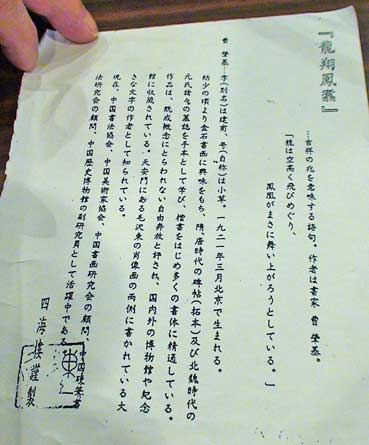 『龍翔鳳翥』
…吉祥の兆を意味する語句。作者は書家 曹 榮基。
「龍は空高く飛びめぐり、
鳳凰がまさに舞い上がろうとしている。」
曹 榮基…字(別名)は建甫、号(自称)は小草。一九二一年三月北京で生まれる。
幼少の頃より金石書画に興味をもち、隋、唐時代の碑帖(拓本)及び北魏時代の
元氏諸々の墓誌を手本として学び、楷書をはじめ多くの書体に精通している。
作品は、既成概念にとらわれない自由奔放と評され、国内外の博物館や紀念
館に収蔵されている。天安門にある毛沢東の肖像画の両側に書かれている大
きな文字の作者として知られている。
現在、中国書法協会、中国美術家協会、中国書画研究会の顧問、中国硬筆書
法研究会の顧問、中国歴史博物館の副研究員として活躍中である
四海樓謹製